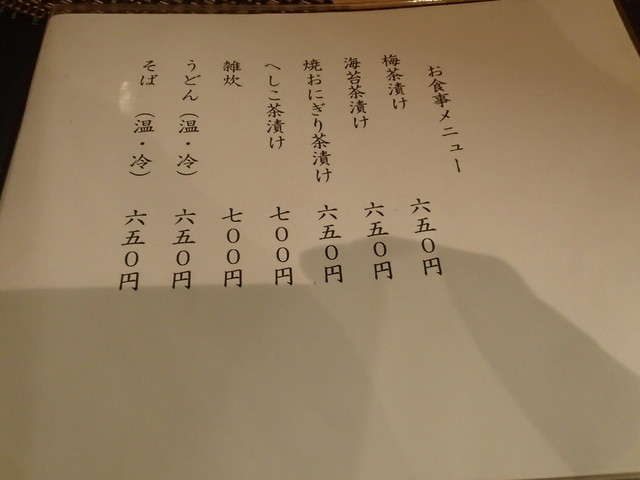 お食事メニュー
梅茶漬け 六五0円
海苔茶漬け 六五0円
焼おにぎり茶漬け 六五0円
へしこ茶漬け 七00円
雑炊 七00円
うどん（温・冷） 六五0円
そば （温・冷） 六五0円